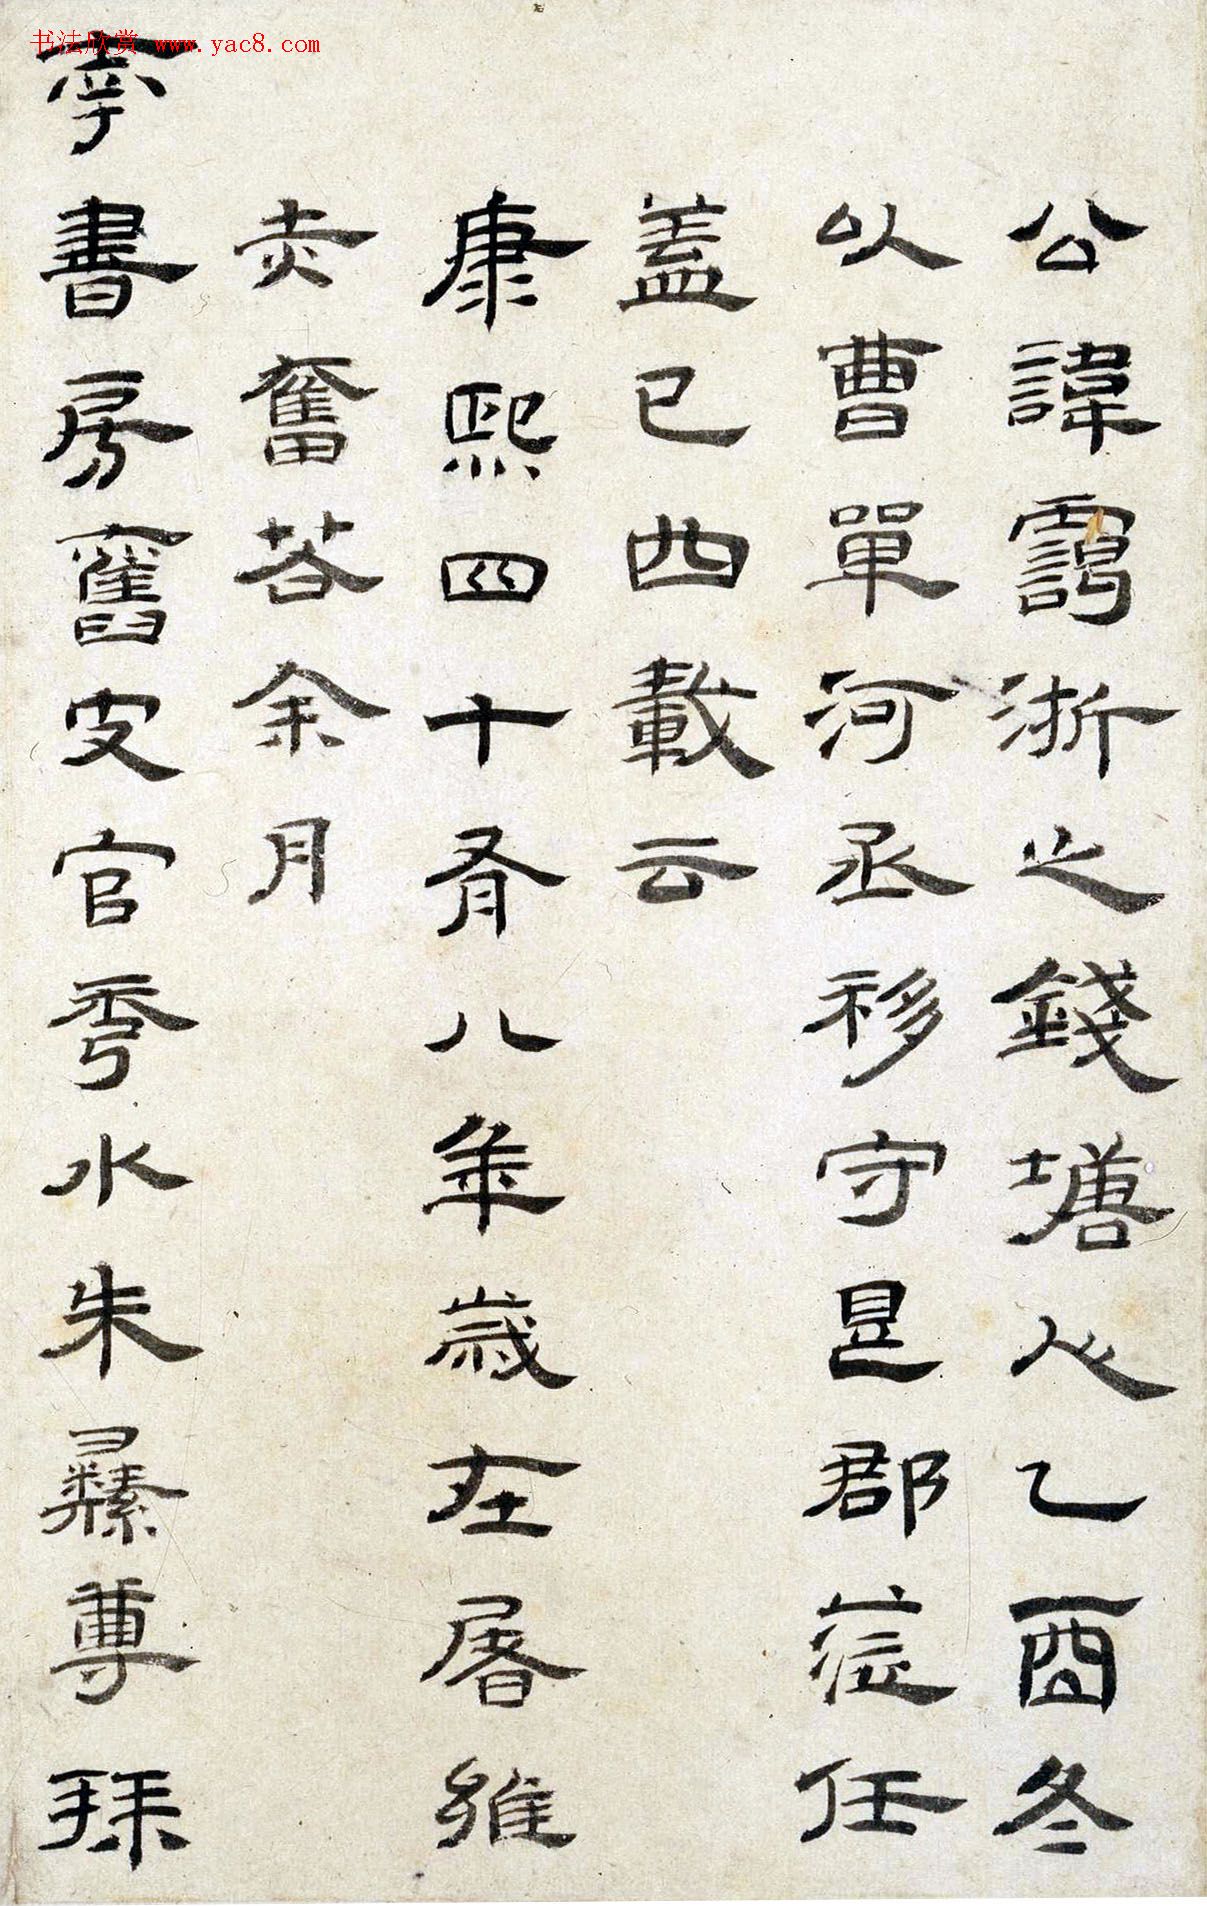 公諱浙之錢塘人乙酉冬
以曹單河丞移守是郡蒞任
蓋已四載云
康熙四十有八年歲在屠維
赤奮若余月
南書房舊史官秀水朱彝尊拜
书法欣赏 www.yac8.com